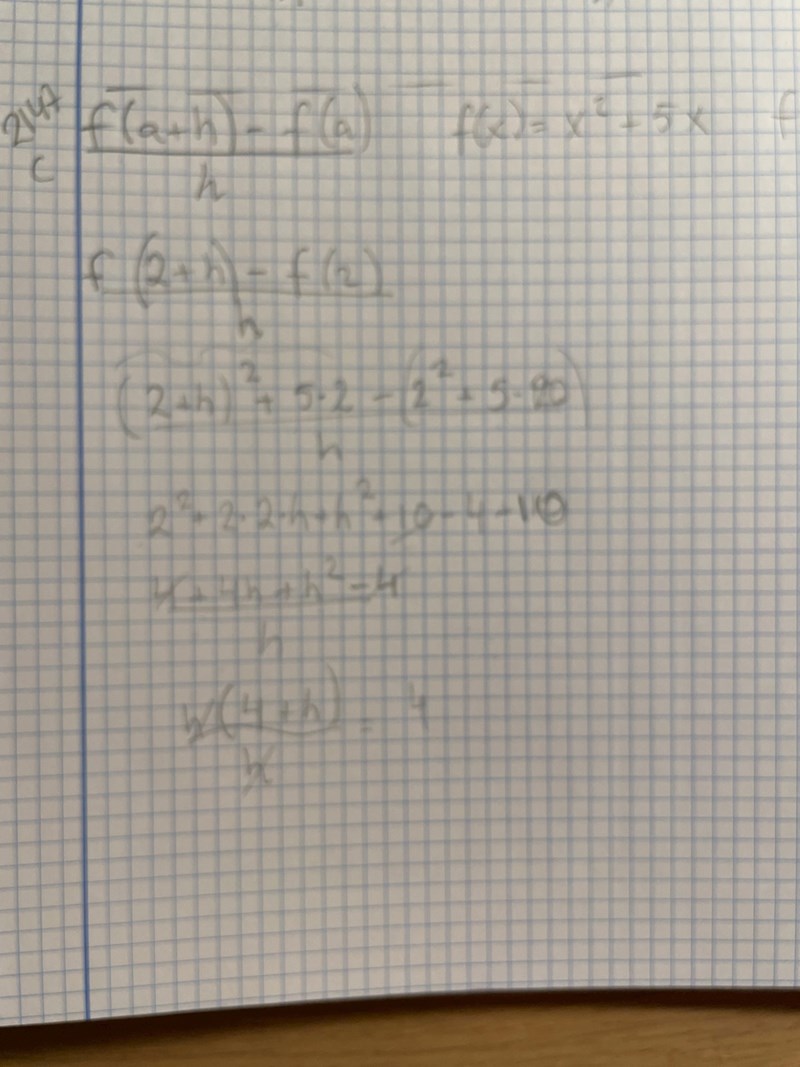 2147 f(a+h) - f(a) f(x) = x² + 5x f
c h
f(2+h) - f(2)
h
(2+h)² + 5·2 - (2² + 5·20)
h
2² + 2·2·h + h² + 10 - 4 - 10
4 + 4h + h² - 4
h
h(4+h) = 4
h